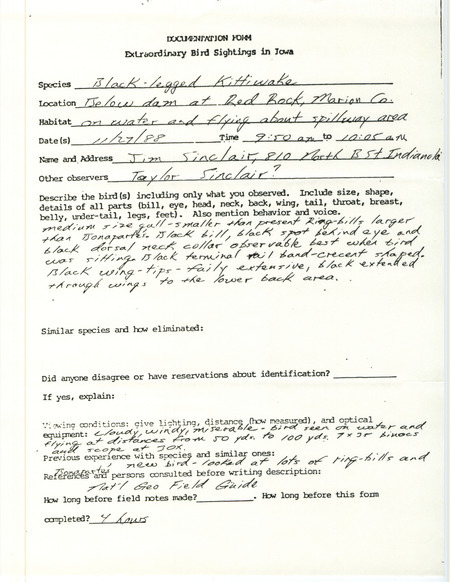 DOCUMENTATION FORM
Extraordinary Bird Sightings in Iowa
Species Black-legged Kittiwake
Location Below dam at Red Rock, Marion Co.
Habitat on water and flying about spillway area
Date(s) 11/27/88 Time 9:50 am to 10:05 a.m.
Name and Address Jim Sinclair, 810 North B St Indianola
Other observers Taylor Sinclair?
Describe the bird(s) including only what you observed. Include size, shape,
details of all parts (bill, eye, head, neck, back, wing, tail, throat, breast,
belly, under-tail, legs, feet). Also mention behavior and voice.
medium size gull - smaller than present Ring-bills larger
than Bonaparte's. Black bill, black spot behind eye and
black dorsal neck collar observable best when bird
was sitting. Black terminal tail band - crecent shaped.
Black wing-tips - faily extensive, black extended
through wings to the lower back area.
Similar species and how eliminated:
Did anyone disagree or have reservations about identification?
If yes, explain:
Viewing conditions: give lighting, distance (how measured), and optical
equipment: cloudy, windy, miserable - bird seen on water and
flying at distances from 50 yds. to 100 yds. 7x35 binocs
and scope at 20x.
Previous experience with species and similar ones:
new bird - looked at lots of ring-bills and
Bonapartes
References and persons consulted before writing description:
Nat'l Geo Field Guide
How long before field notes made? . How long before this form
completed? 4 hours